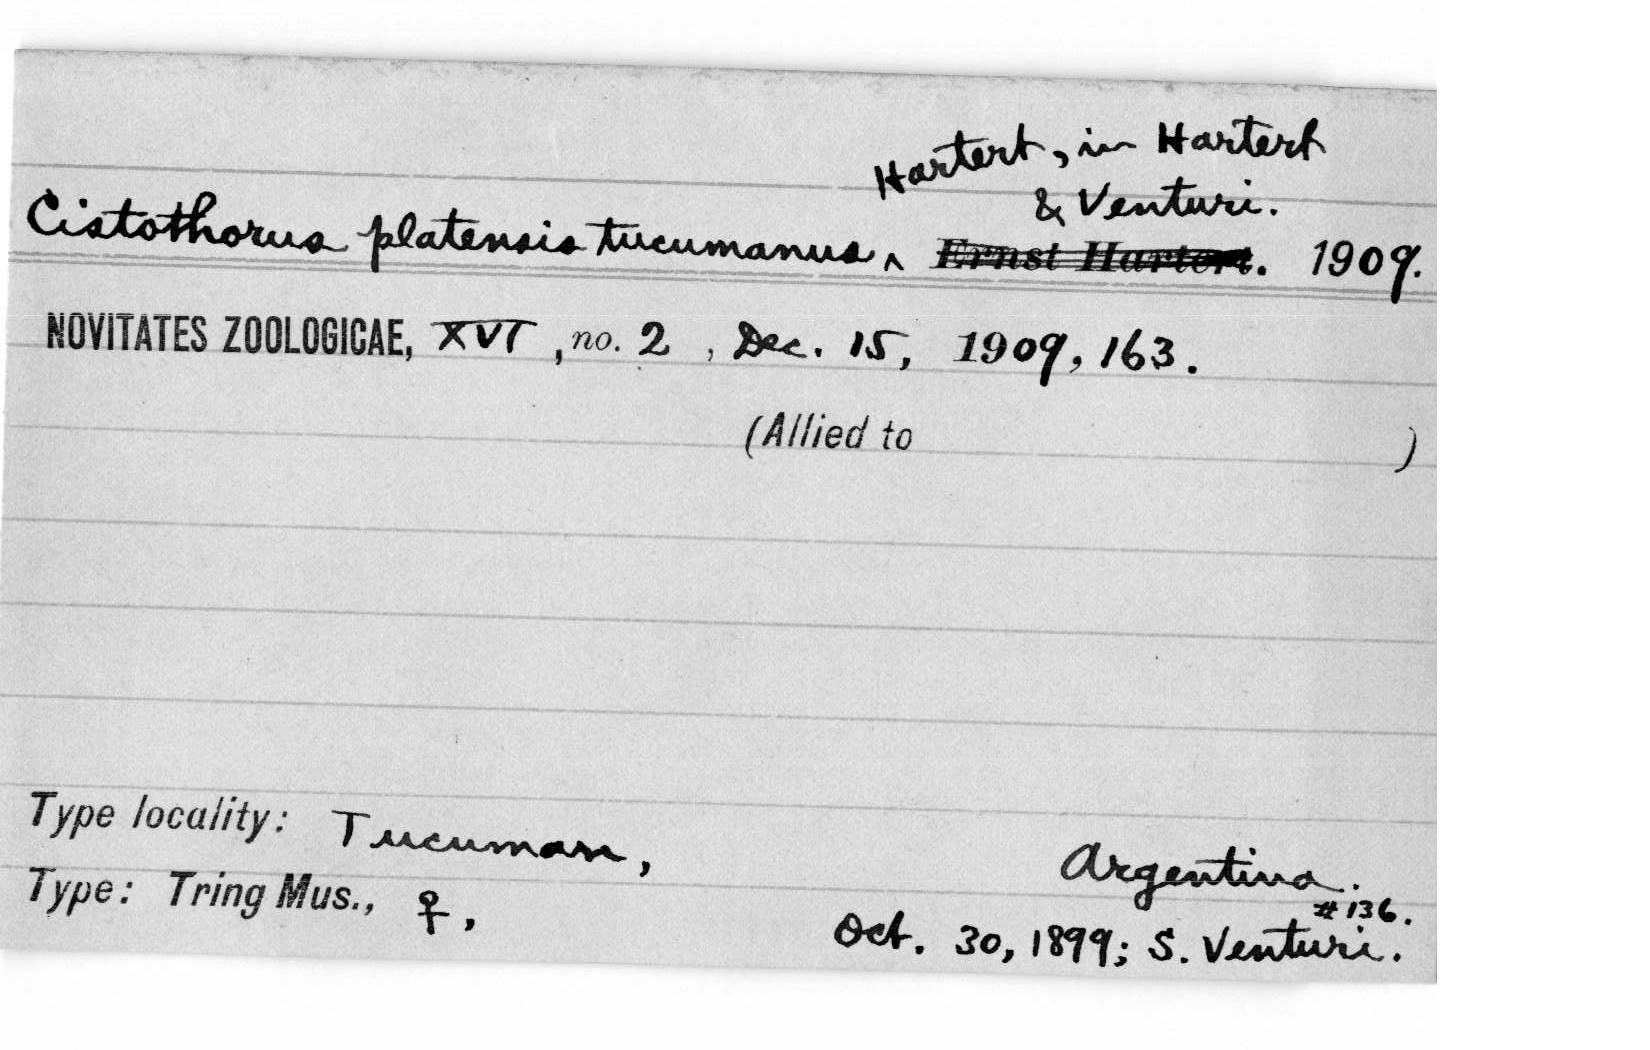 Hartert, in Hartert
& Venturi.
Cistothorus platensis tucumanus ^ Ernst Hartert. 1909.
NOVITATES ZOOLOGICAE, XVI, no. 2, Dec. 15, 1909, 163.
(Allied to )
Type locality: Tucuman, Argentina.
#136.
Type: Tring Mus., ♀, Oct. 30, 1899; S. Venturi.